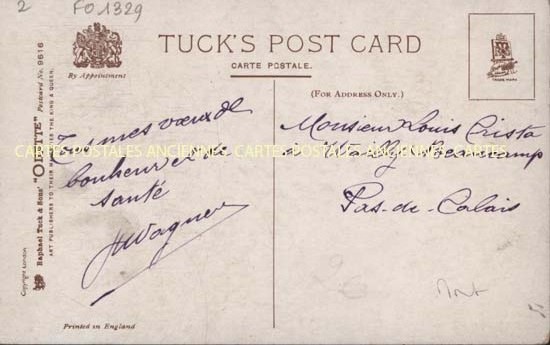 2
FO1329
By Appointment
TUCK'S POST CARD
CARTE POSTALE.
(FOR ADDRESS ONLY.)
TRADE MARK
Raphael Tuck & Sons' "OILETTE" Postcard No. 9616
ART PUBLISHERS TO THEIR MAJESTIES THE KING & QUEEN.
Copyright London
CARTES POSTALES ANCIENNES - CARTES POSTALES ANCIENNES - CARTES POSTALES ANCIENNES
mes vœux de
bonheur et de
santé
Wagner
Monsieur Louis Crista
à Wailly-Beaucamp
Pas-de-Calais
26
Printed in England